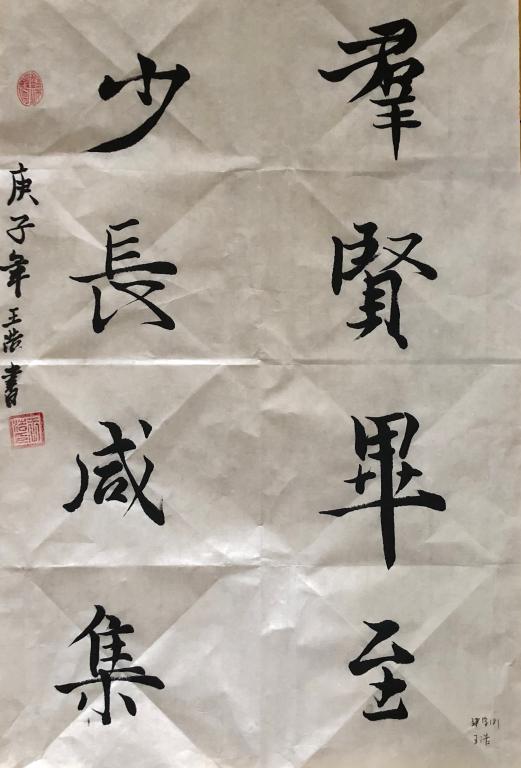 羣賢畢至
少長咸集
庚子年王浩書
王浩